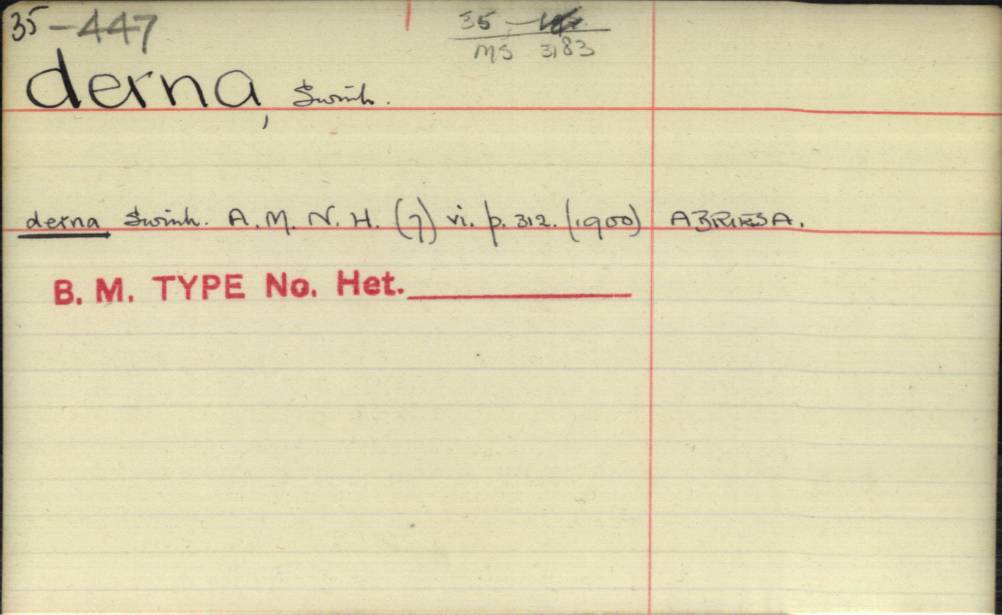 35-447
35
MS 3183
derna, Swinh.
derna Swinh. A.M.N.H. (7) vi. p. 312. (1900) ABRIESA.
B. M. TYPE No. Het.